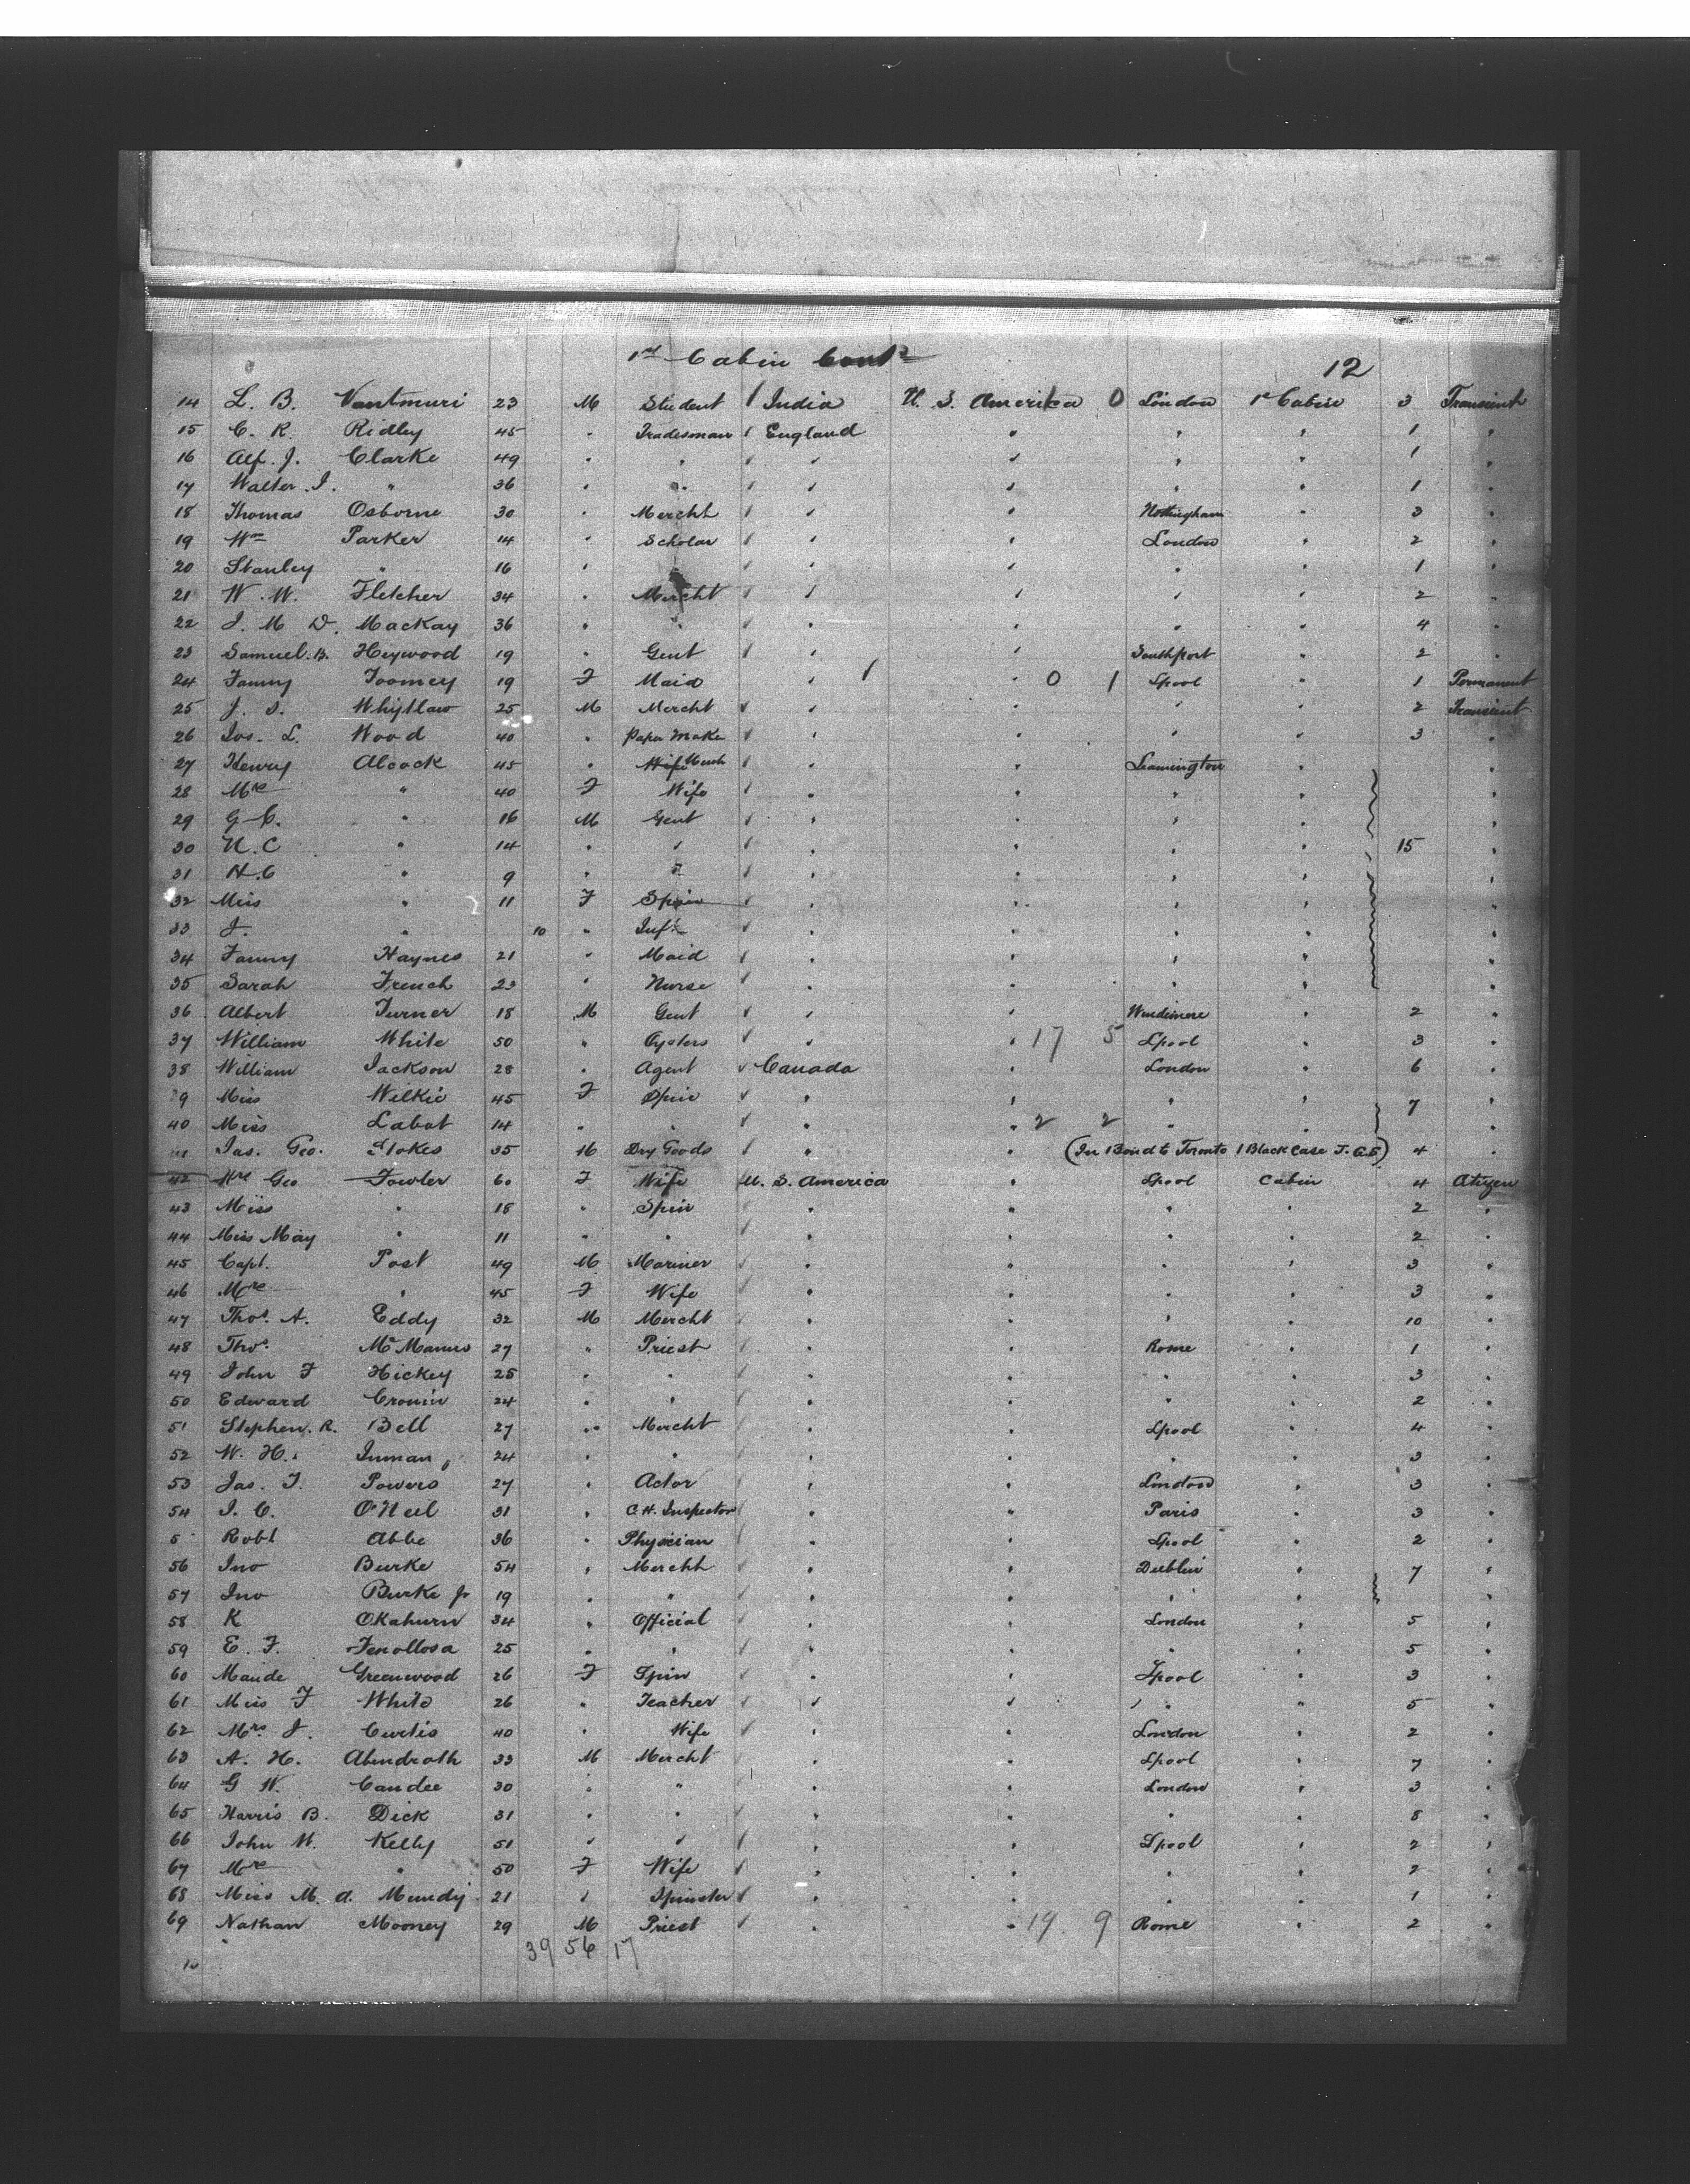 1st Cabin Cont^d 12
14 L. B. Vantmuri 23 M Student India U. S. America 0 London 1st Cabin 3 Transient
15 C. R. Ridley 45 " Tradesman England " " " 1 "
16 Alf. J. Clarke 49 " " " " " " 1 "
17 Walter J. " 36 " " " " " " 1 "
18 Thomas Osborne 30 " Mercht " " Nottingham " 3 "
19 Wm Parker 14 " Scholar " " London " 2 "
20 Stanley " 16 " " " " " 1 "
21 W. W. Fletcher 34 " Mercht " " " " 2 "
22 J. M. D. Mackay 36 " " " " " " 4 "
23 Samuel B. Heywood 19 " Gent " " Southport " 2 "
24 Fanny Toomey 19 F Maid " 1 " 0 1 Lpool " 1 Permanent
25 J. S. Whytlaw 25 M Mercht " " " " 2 Transient
26 Jos. L. Wood 40 " Paper Make " " " " 3 "
27 Henry Alcock 45 " Wife Merch " " Leamington " "
28 Mrs " 40 F Wife " " " " "
29 G. C. " 16 M Gent " " " " "
30 N. C " 14 " " " " " " 15 "
31 H. C " 9 " " " " " " "
32 Miss " 11 F Spin " " " " "
33 J. " 10 " Inft " " " " "
34 Fanny Haynes 21 " Maid " " " " "
35 Sarah French 23 " Nurse " " " " "
36 Albert Turner 18 M Gent " " Windimere " 2 "
37 William White 50 " Oysters " " 17 5 Lpool " 3 "
38 William Jackson 28 " Agent Canada " London " 6 "
39 Miss Wilkie 45 F Spin " " " " 7 "
40 Miss Labat 14 " " " " 2 2 " " "
Jas. Geo. Stokes 35 M Dry Goods " " (In Bond to Toronto 1 Black Case J. G. S) 4 "
42 Mrs Geo Fowler 60 F Wife U. S. America " Lpool Cabin 4 Citizen
43 Miss " 18 " Spin " " " " 2 "
44 Miss May " 11 " " " " " " 2 "
45 Capt. Post 49 M Mariner " " " " 3 "
46 Mrs " 45 F Wife " " " " 3 "
47 Thos. A. Eddy 32 M Mercht " " " " 10 "
48 Thos. McManus 27 " Priest " " Rome " 1 "
49 John F Hickey 25 " " " " " " 3 "
50 Edward Cronin 24 " " " " " " 2 "
51 Stephen. R. Bell 27 " Mercht " " Lpool " 4 "
52 W. H. Inman 24 " " " " " " 3 "
53 Jas. T. Powers 27 " Actor " " London " 3 "
54 J. C. O'Neil 31 " C. H. Inspector " " Paris " 3 "
5 Robt Abbe 36 " Physician " " Lpool " 2 "
56 Jno Burke 54 " Mercht " " Dublin " 7 "
57 Jno Burke Jr 19 " " " " " " "
58 K Okahurn 34 " Official " " London " 5 "
59 E. F. Fenollosa 25 " " " " " " 5 "
60 Maude Greenwood 26 F Spin " " Lpool " 3 "
61 Miss F White 26 " Teacher " " " " 5 "
62 Mrs J. Curtis 40 " Wife " " London " 2 "
63 A. H. Abendroth 33 M Mercht " " Lpool " 7 "
64 G W. Candee 30 " " " " London " 3 "
65 Harris B. Dick 31 " " " " " " 8 "
66 John W. Kelly 51 " " " " Lpool " 2 "
67 Mrs " 50 F Wife " " " " 2 "
68 Miss M. A. Mundy 21 " Spinster " " " " 1 "
69 Nathan Mooney 29 M Priest " " 19 9 Rome " 2 "
39 56 17